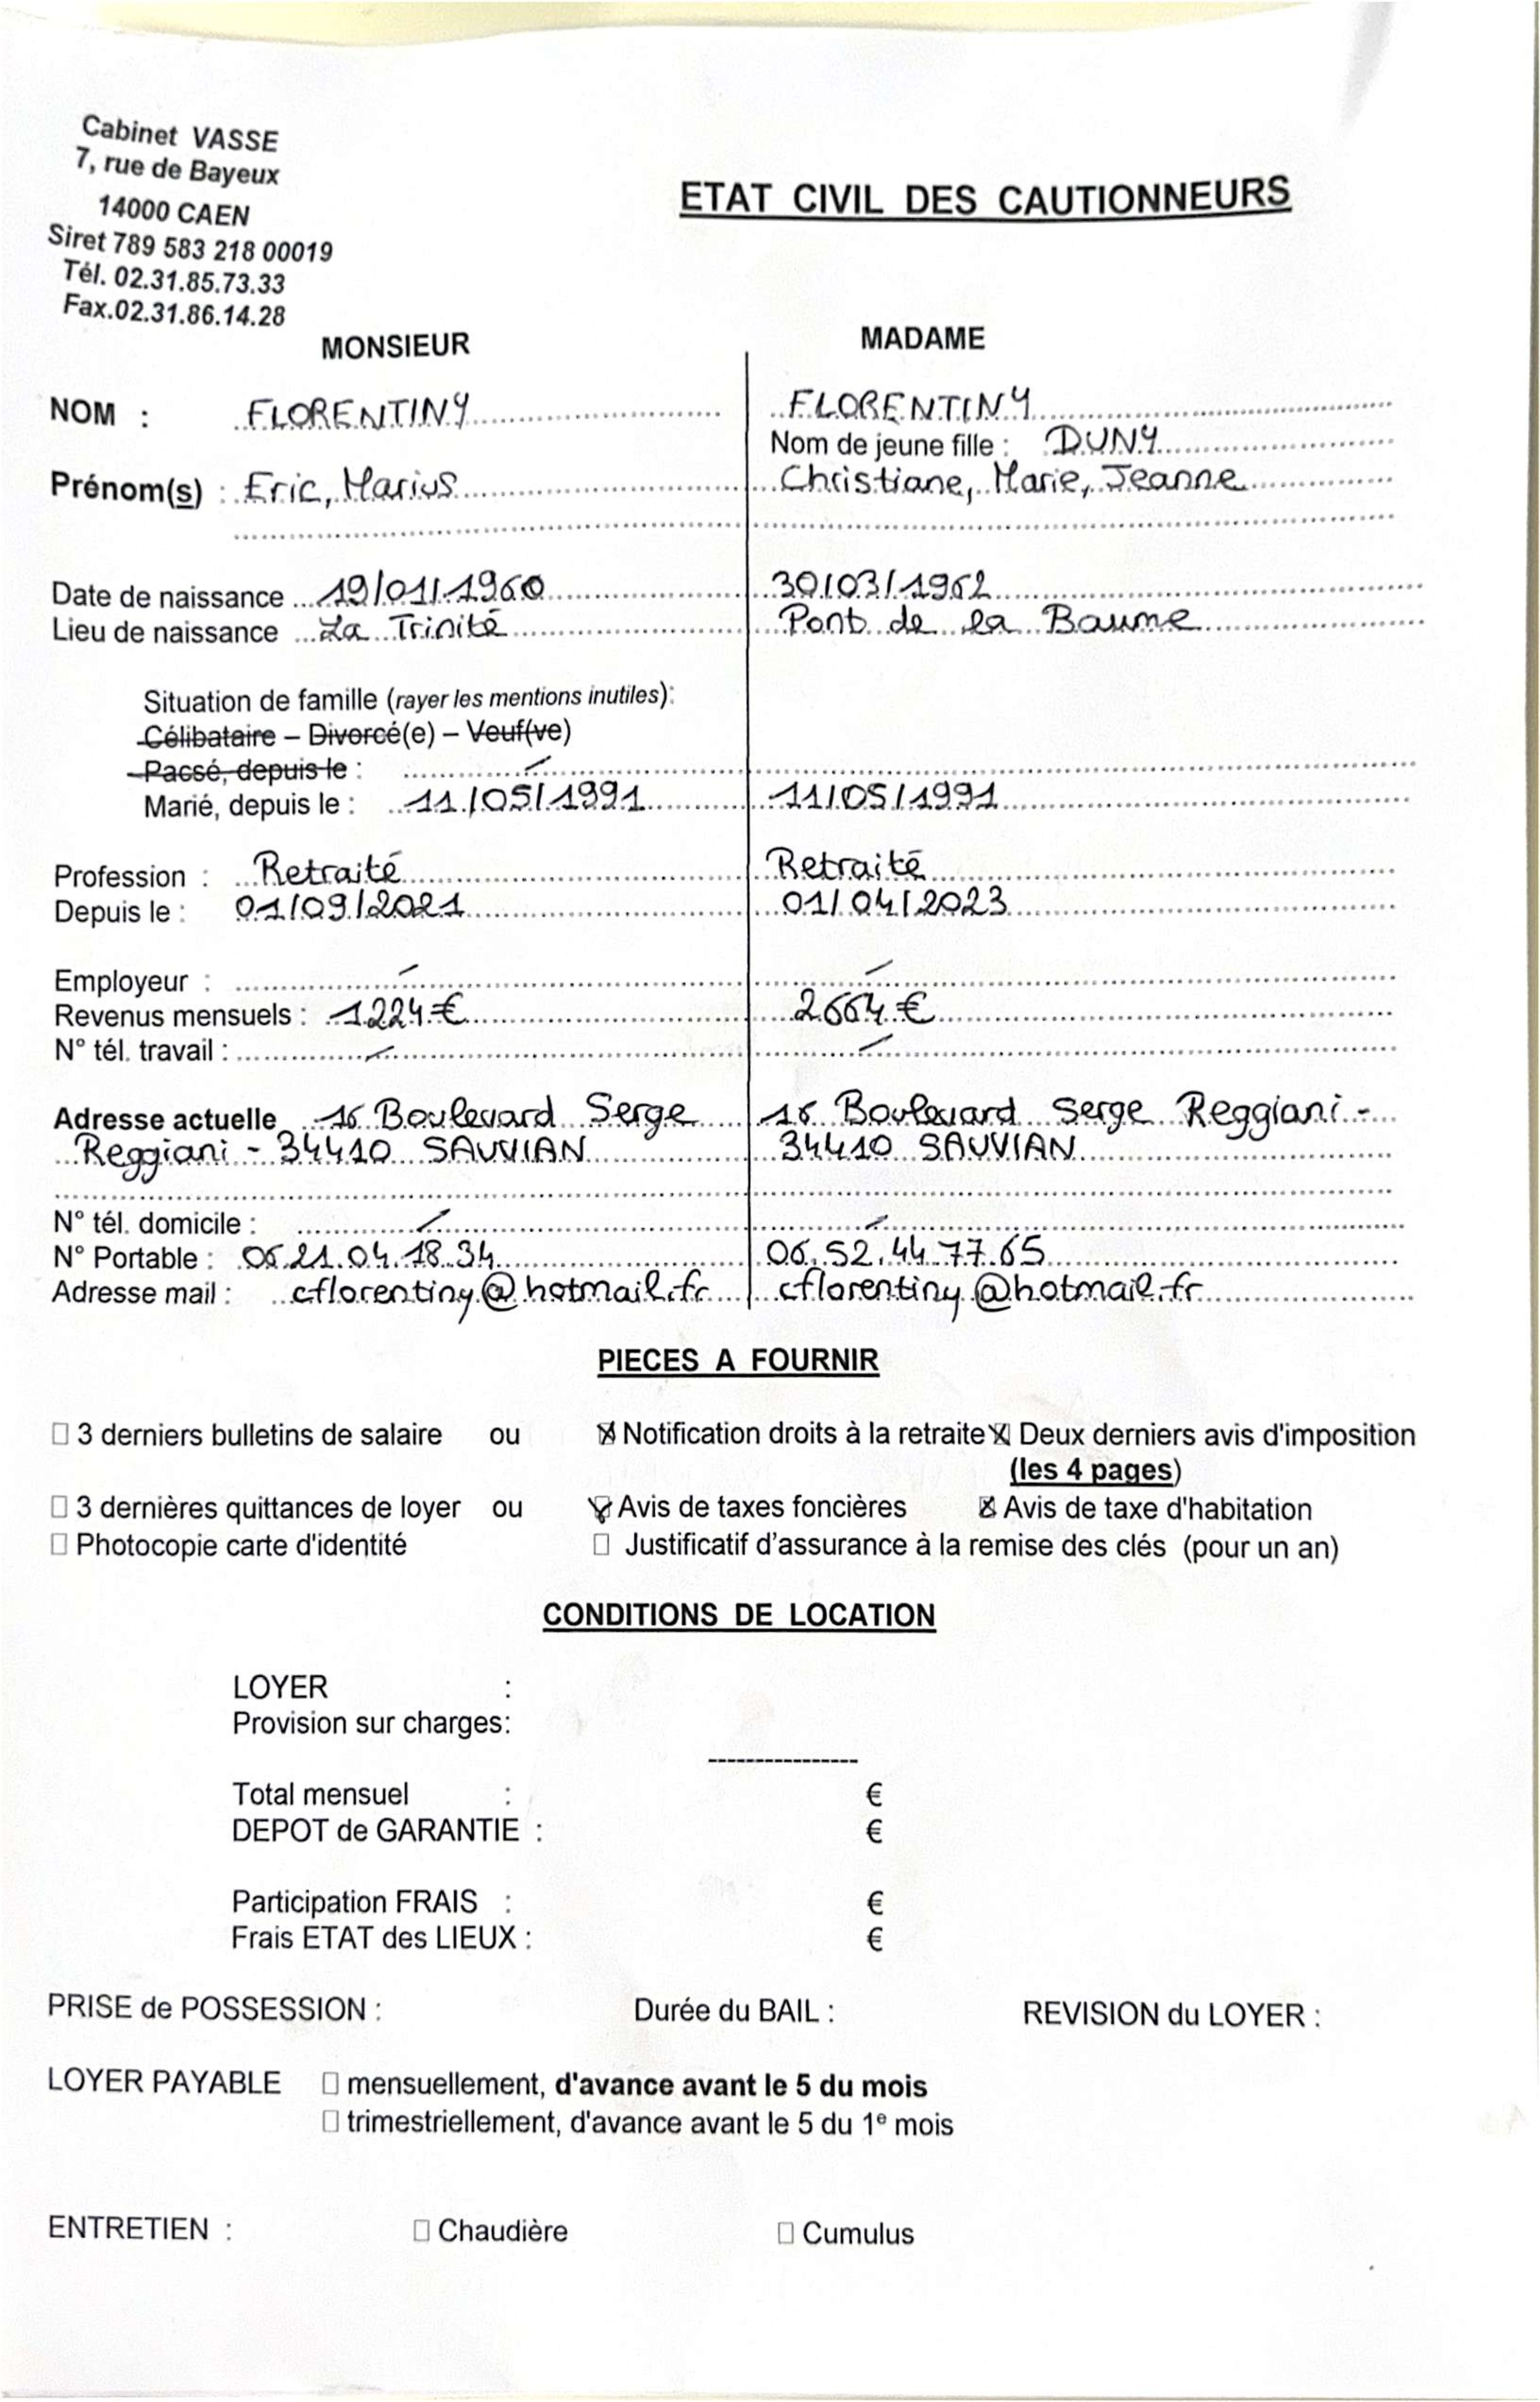 Cabinet VASSE
7, rue de Bayeux
14000 CAEN
Siret 789 583 218 00019
Tél. 02.31.85.73.33
Fax.02.31.86.14.28
ETAT CIVIL DES CAUTIONNEURS
MONSIEUR MADAME
NOM : FLORENTINY FLORENTINY
Nom de jeune fille : DUNY
Prénom(s) : Eric, Marius Christiane, Marie, Jeanne
Date de naissance 19/01/1960 30/03/1962
Lieu de naissance La Trinité Pont de la Baume
Situation de famille (rayer les mentions inutiles):
Célibataire – Divorcé(e) – Veuf(ve)
Pacsé, depuis le : /
Marié, depuis le : 11/05/1991 11/05/1991
Profession : Retraité Retraité
Depuis le : 01/09/2021 01/04/2023
Employeur : / /
Revenus mensuels : 1224 € 2664 €
N° tél. travail : / /
Adresse actuelle 16 Boulevard Serge 16 Boulevard Serge Reggiani -
Reggiani - 34410 SAUVIAN 34410 SAUVIAN
N° tél. domicile : / /
N° Portable : 06.21.04.18.34 06.52.44.77.65
Adresse mail : cflorentiny@hotmail.fr cflorentiny@hotmail.fr
PIECES A FOURNIR
☐ 3 derniers bulletins de salaire ou ☒ Notification droits à la retraite ☒ Deux derniers avis d'imposition
(les 4 pages)
☐ 3 dernières quittances de loyer ou ☒ Avis de taxes foncières ☒ Avis de taxe d'habitation
☐ Photocopie carte d'identité ☐ Justificatif d'assurance à la remise des clés (pour un an)
CONDITIONS DE LOCATION
LOYER :
Provision sur charges:
----------------
Total mensuel : €
DEPOT de GARANTIE : €
Participation FRAIS : €
Frais ETAT des LIEUX : €
PRISE de POSSESSION : Durée du BAIL : REVISION du LOYER :
LOYER PAYABLE ☐ mensuellement, d'avance avant le 5 du mois
☐ trimestriellement, d'avance avant le 5 du 1e mois
ENTRETIEN : ☐ Chaudière ☐ Cumulus